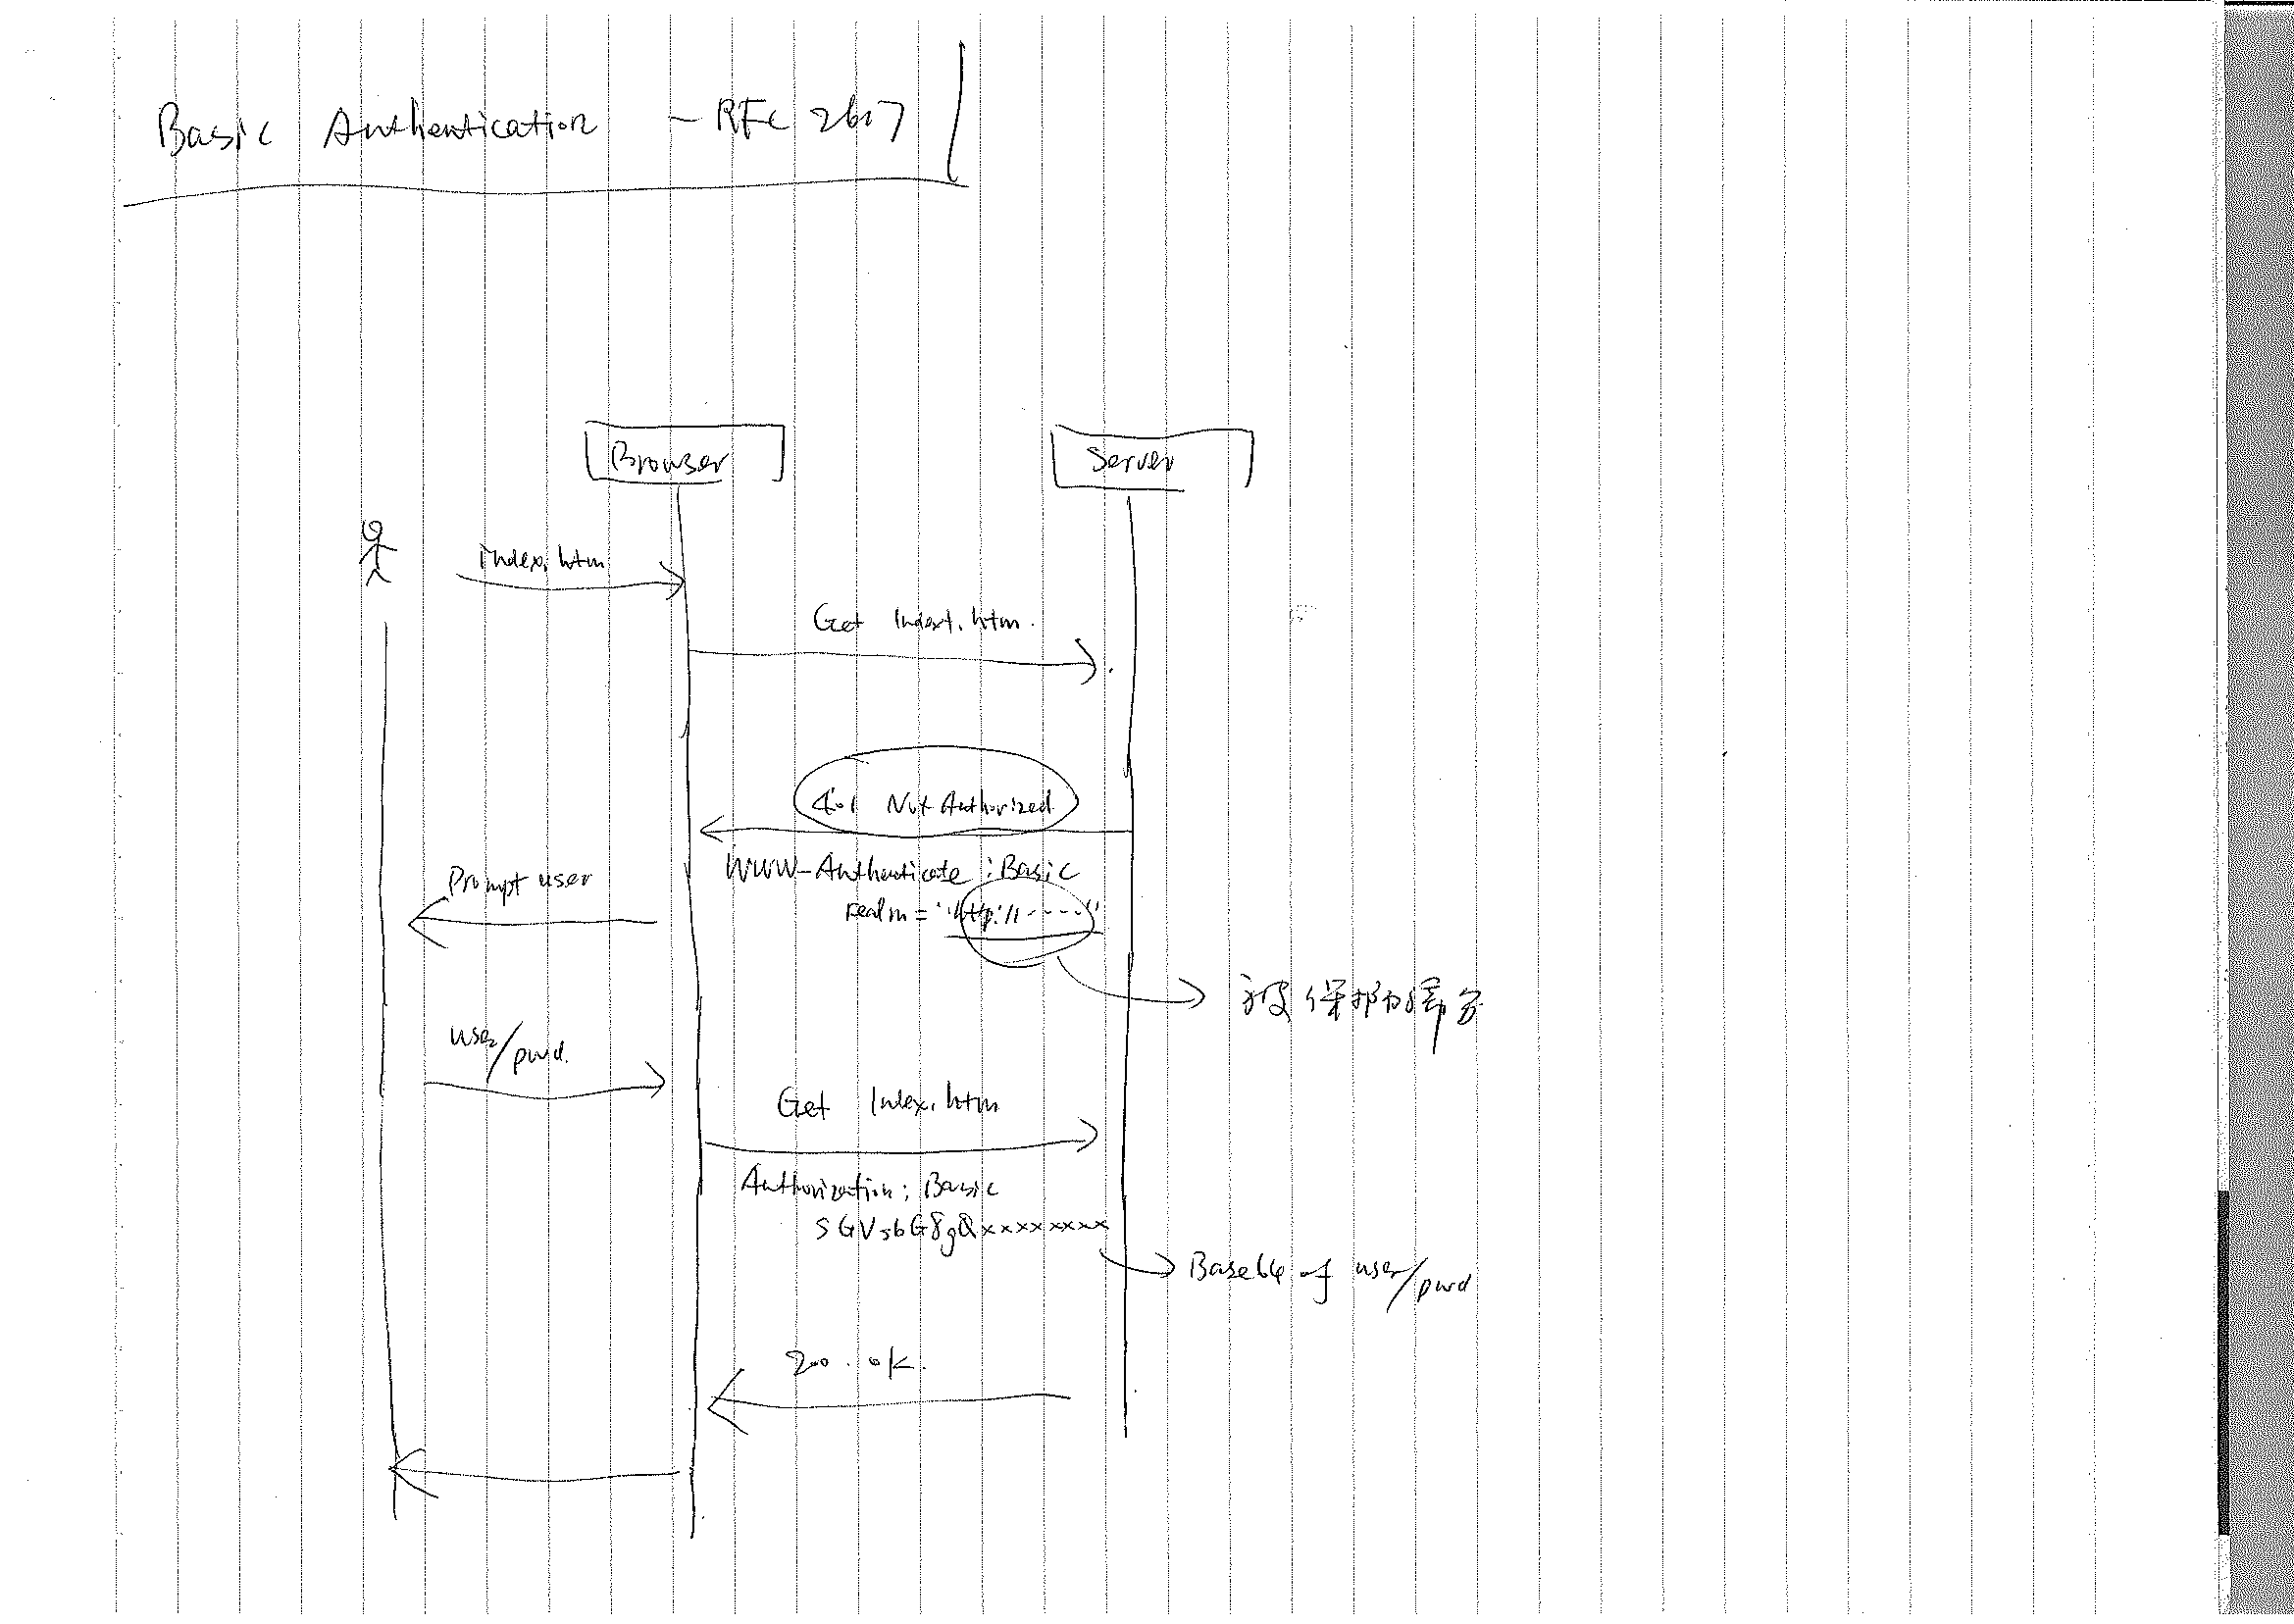 Basic Authentication - RFC 2617
Browser
Server
index.htm
Get Indext.htm.
401 Not Authorized
WWW-Authenticate : Basic
realm = "http://-----"
Prompt user
被保护的部分
user/pwd.
Get Index.htm
Authorization: Basic
SGVsbG8gQxxxxxxxx
Base64 of user/pwd
200. ok.